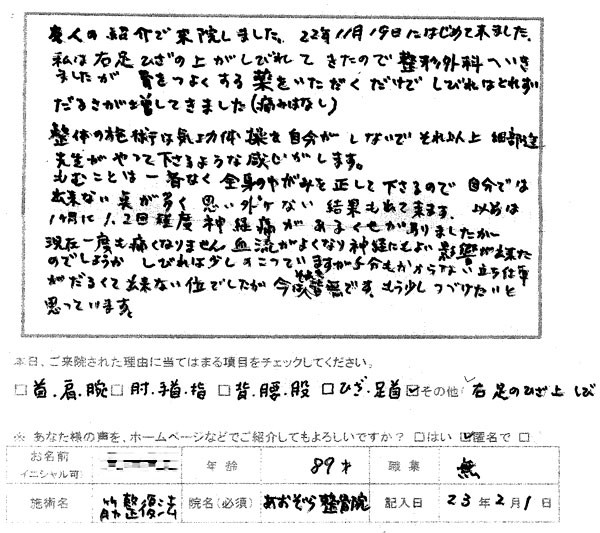 友人の紹介で来院しました。22年11月19日にはじめて来ました。
私は右足ひざの上がしびれてきたので整形外科へいき
ましたが骨をつよくする薬をいただくだけでしびれはとれず
だるさが増してきました(痛みはなし)
整体の施術は気功体操を自分がしないでそれ以上細部迄
先生がやって下さるような感じがします。
もむことは一番なく全身のゆがみを正して下さるので自分では
出来ない点が多く思い外ケない結果も出て来ます。以前は
1ヶ月に1、2回程度神経痛がおこるくせがありましたが
現在一度も痛くなりません血流がよくなり神経にもよい影響が出来た
のでしょうか しびれは少しのこっていますが5分もかからない立ち仕事
がだるくて出来ない位でしたが今はそれも皆無です。もう少しつづけたいと
思っています。
本日、ご来院された理由に当てはまる項目をチェックしてください。
□首.肩.腕□肘.手首.指 □背.腰.股 □ひざ.足首☑その他 右足のひざ上しび
※ あなた様の声を、ホームページなどでご紹介してもよろしいですか? □はい ☑匿名で □
お名前 イニシャル可 年齢 89才 職業 無
施術名 筋整復法 院名(必須) あおぞら整骨院 記入日 23年2月1日